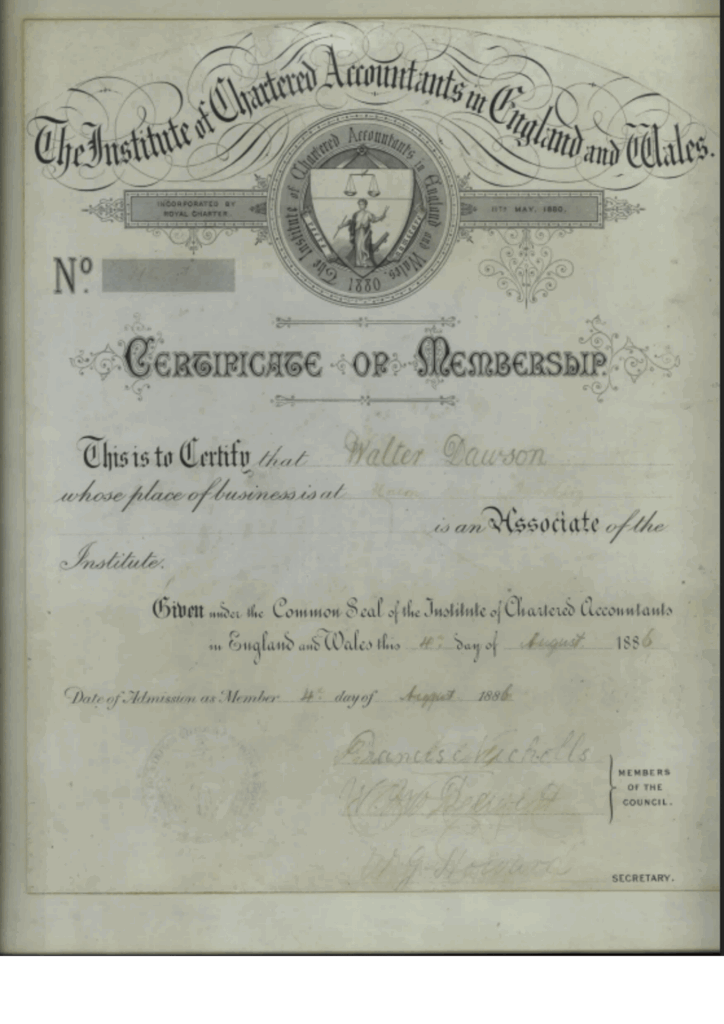 The Institute of Chartered Accountants in England and Wales.
The Institute of Chartered Accountants in England and Wales.
1880
INCORPORATED BY
ROYAL CHARTER.
11TH MAY, 1880.
No.
CERTIFICATE OF MEMBERSHIP.
This is to Certify that Walter Dawson
whose place of business is at
is an Associate of the
Institute.
Given under the Common Seal of the Institute of Chartered Accountants
in England and Wales this 4th day of August 1886
Date of Admission as Member 4th day of August 1886
MEMBERS
OF THE
COUNCIL.
SECRETARY.